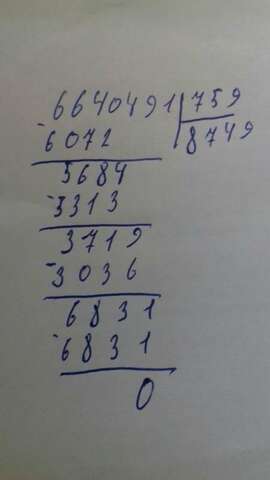 6640491|759
-6072 8749
5684
-5313
3719
-3036
6831
-6831
0